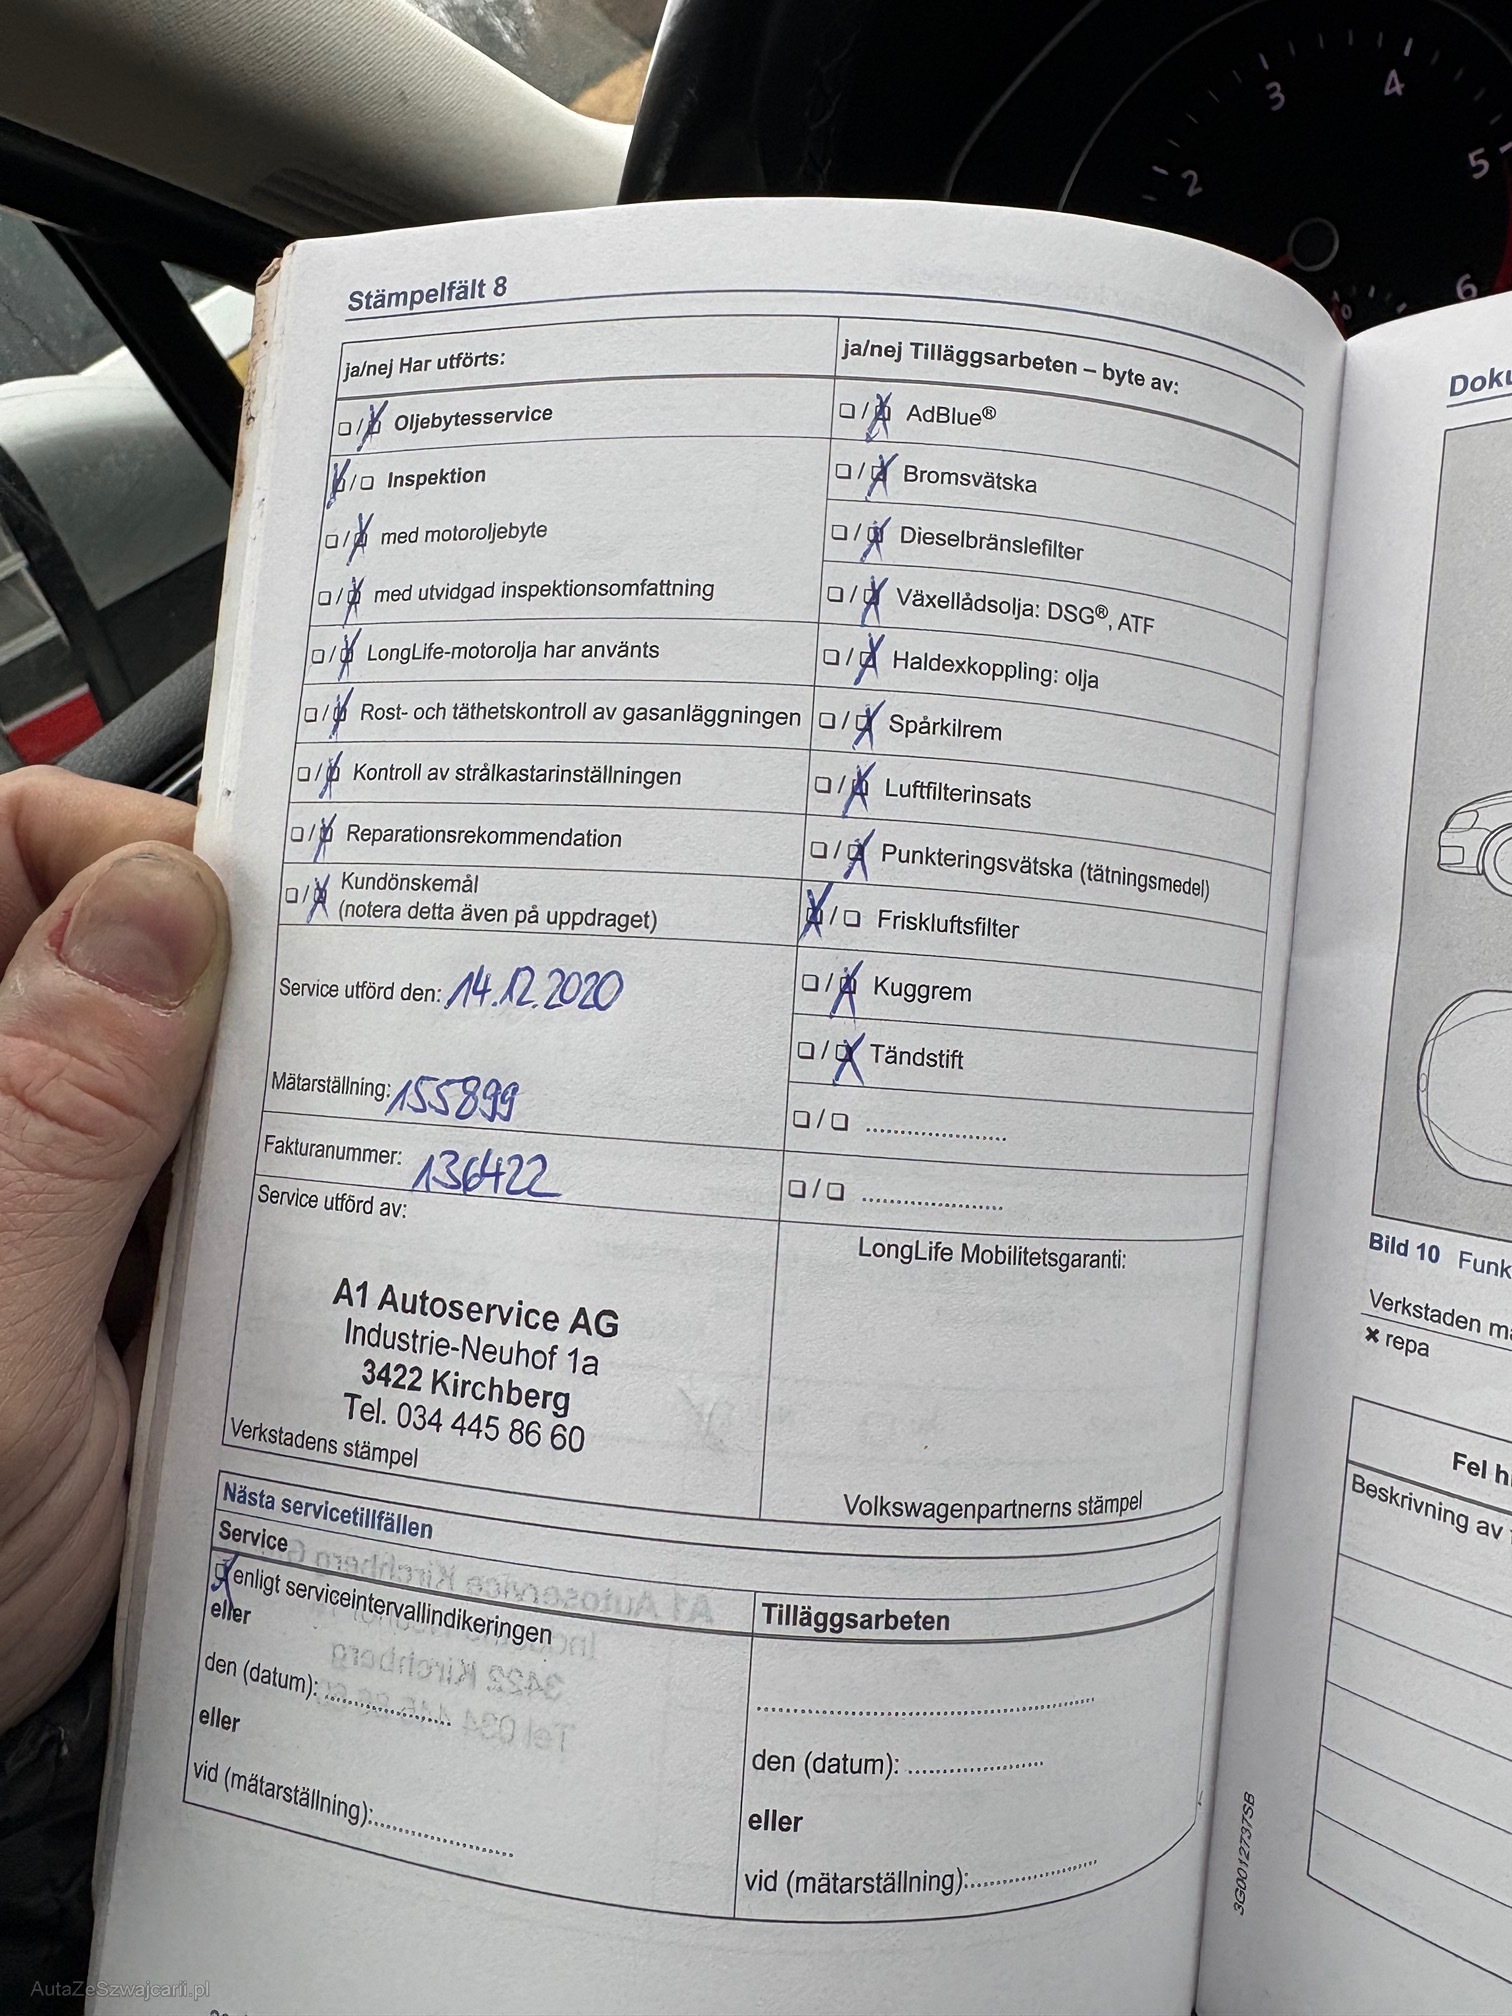 3
4
2
5
6
Stämpelfält 8
ja/nej Har utförts:
/ Oljebytesservice
/ Inspektion
/ med motoroljebyte
/ med utvidgad inspektionsomfattning
/ LongLife-motorolja har använts
/ Rost- och täthetskontroll av gasanläggningen
/ Kontroll av strålkastarinställningen
/ Reparationsrekommendation
/ Kundönskemål
(notera detta även på uppdraget)
Service utförd den: 14.12.2020
Mätarställning: 155899
Fakturanummer: 136422
Service utförd av:
A1 Autoservice AG
Industrie-Neuhof 1a
3422 Kirchberg
Tel. 034 445 86 60
Verkstadens stämpel
ja/nej Tilläggsarbeten – byte av:
/ AdBlue®
/ Bromsvätska
/ Dieselbränslefilter
/ Växellådsolja: DSG®, ATF
/ Haldexkoppling: olja
/ Spårkilrem
/ Luftfilterinsats
/ Punkteringsvätska (tätningsmedel)
/ Friskluftsfilter
/ Kuggrem
/ Tändstift
/ ....................
/ ....................
LongLife Mobilitetsgaranti:
Volkswagenpartnerns stämpel
Nästa servicetillfällen
Service
enligt serviceintervallindikeringen
eller
den (datum):....................
eller
vid (mätarställning):....................
Tilläggsarbeten
..................................................
den (datum): ....................
eller
vid (mätarställning):....................
3G0012737SB
Bild 10 Funk
Verkstaden
repa
Fel
Beskrivning av
AutaZeSzwajcarii.pl